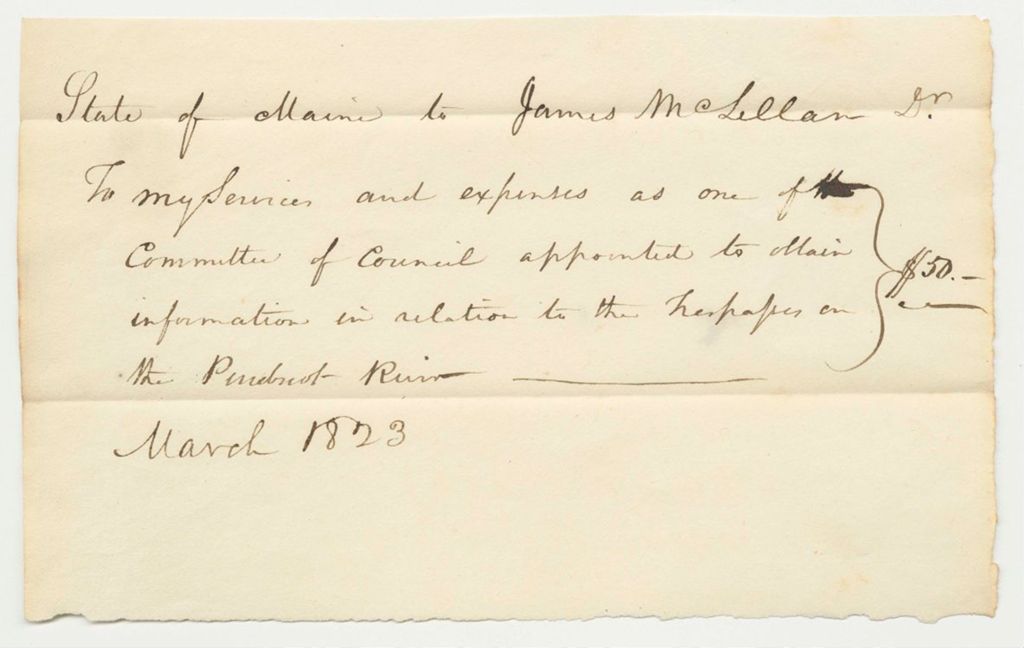 State of Maine to James McLellan Dr.
To my Services and expenses as one of the
Committee of Council appointed to obtain
information in relation to the Trespasses on
the Penobscot River
$50.—
March 1823